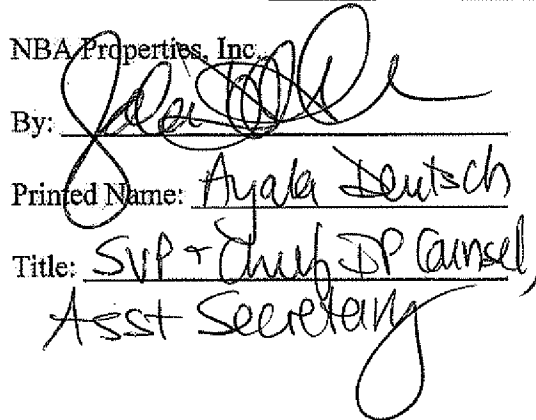 NBA Properties, Inc.
By:
Printed Name: Ayala Deutsch
Title: SVP + Chief IP Counsel,
Asst Secretary